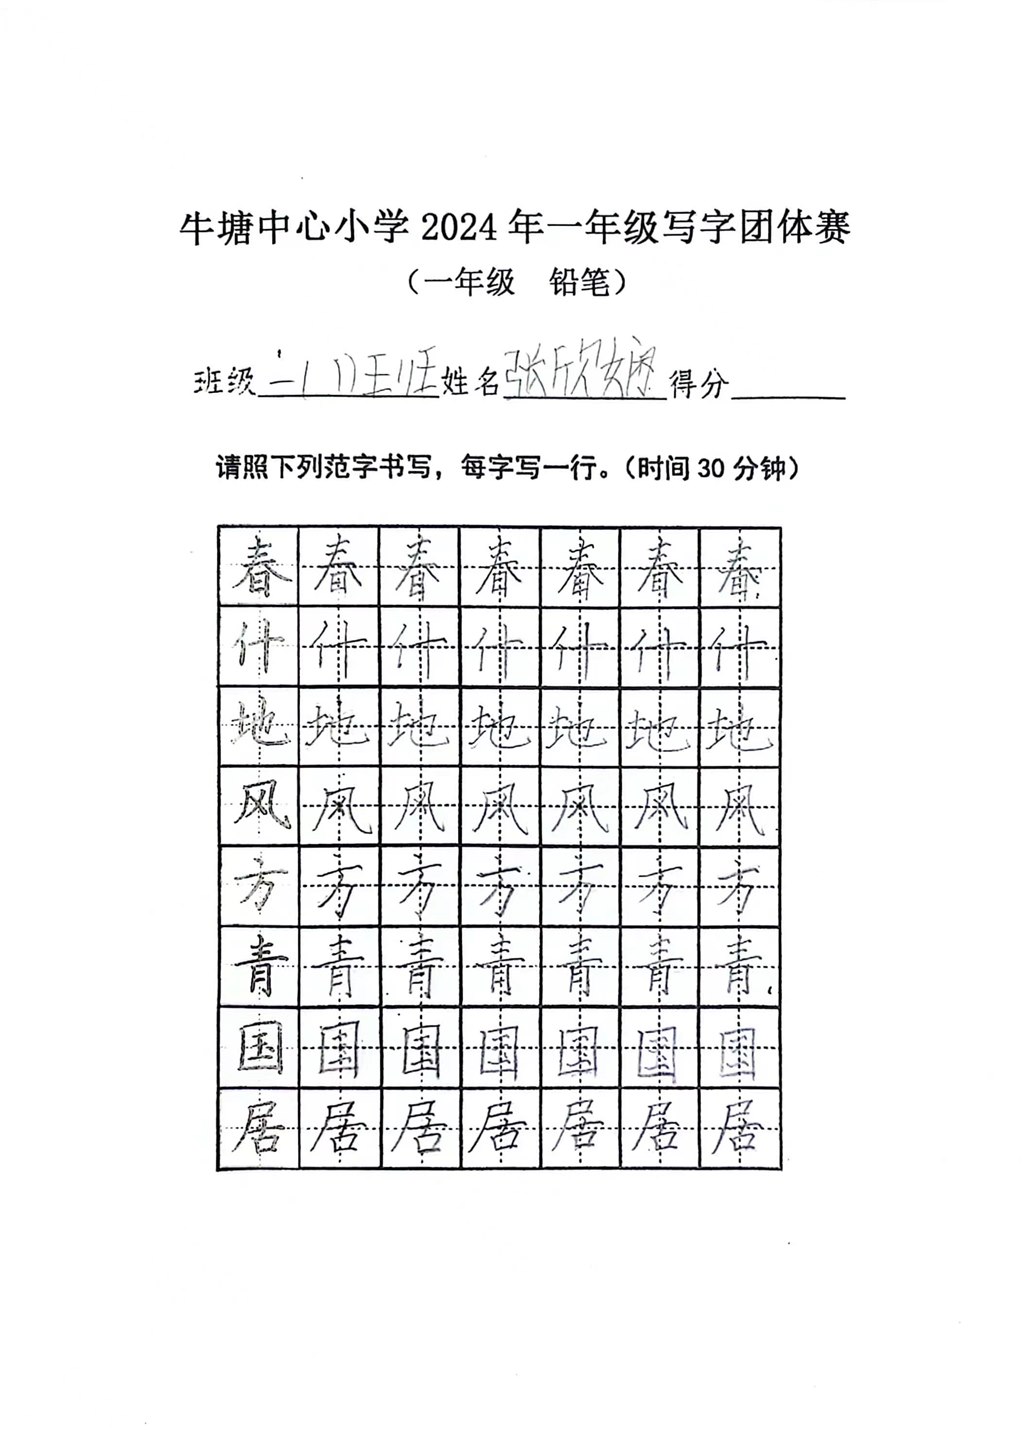 牛塘中心小学 2024 年一年级写字团体赛
（一年级　铅笔）
班级 一(1)班 姓名 张欣 得分
请照下列范字书写，每字写一行。（时间 30 分钟）
春 春 春 春 春 春 春
什 什 什 什 什 什 什
地 地 地 地 地 地 地
风 风 风 风 风 风 风
方 方 方 方 方 方 方
青 青 青 青 青 青 青
国 国 国 国 国 国 国
居 居 居 居 居 居 居